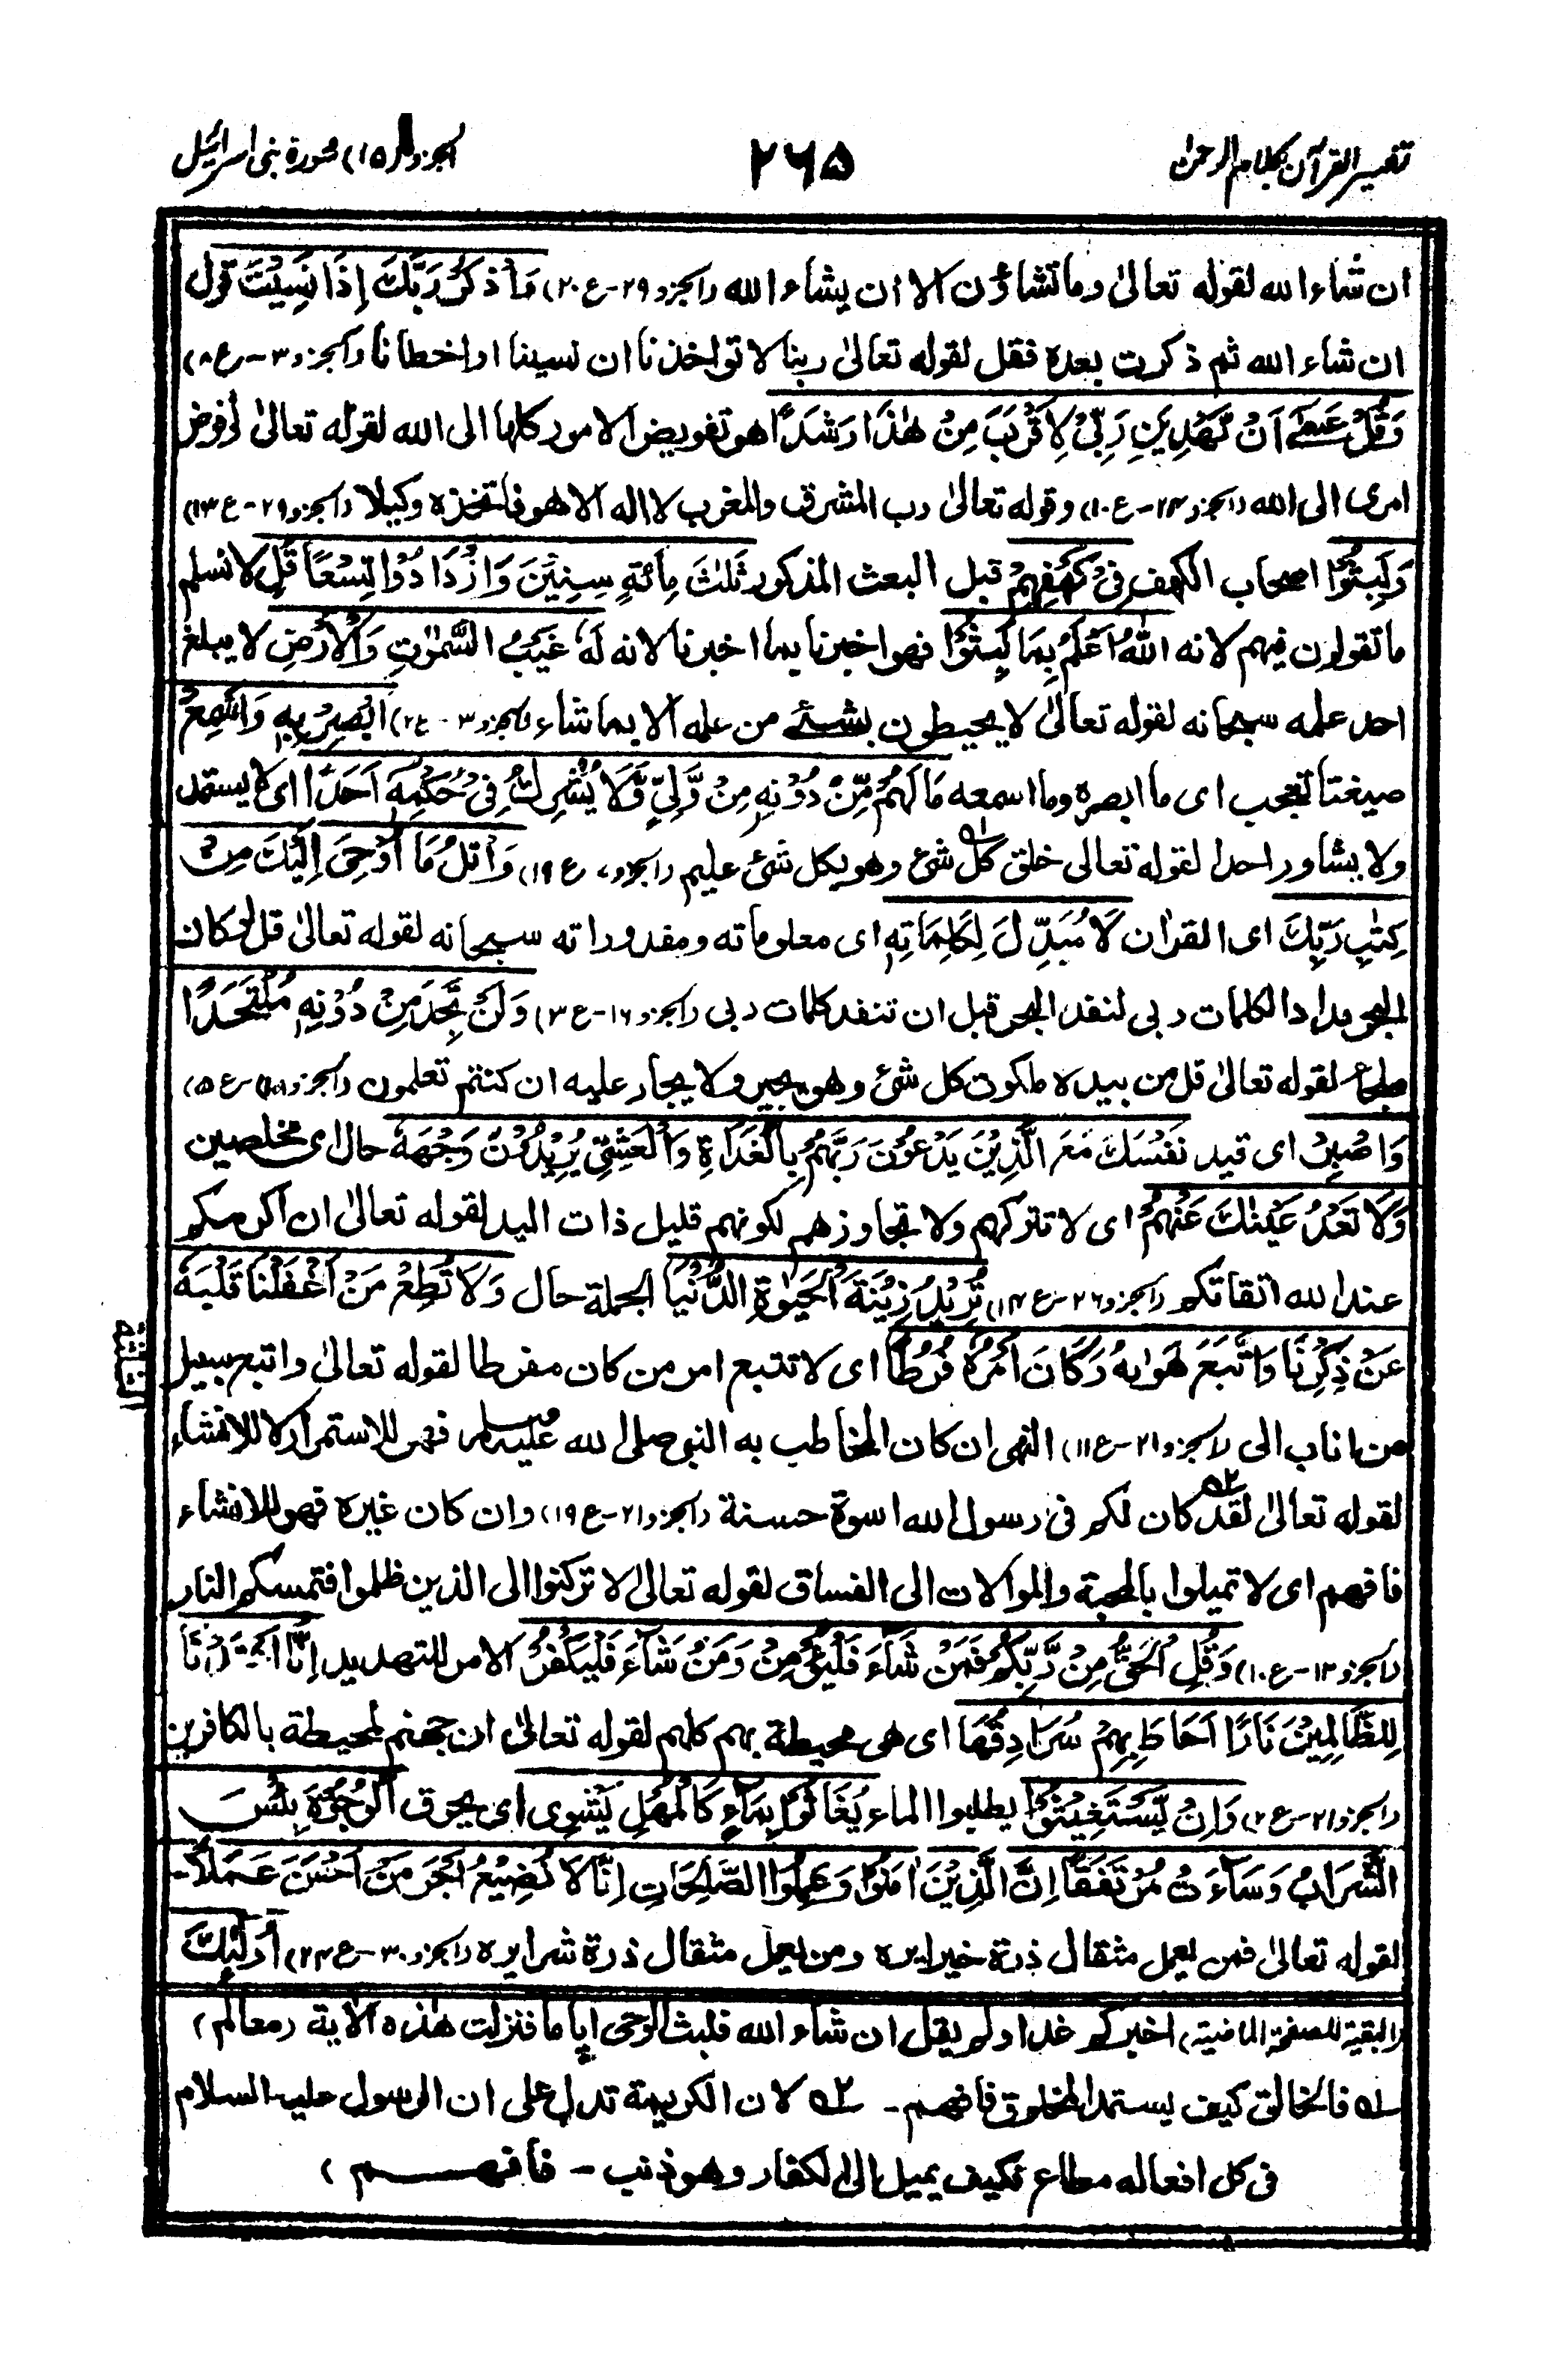 تفسیر القرآن بکلام الرحمن
٢٦٥
الجزو (١٥) سورة بنی اسرائیل
ان شاء الله لقوله تعالیٰ وما تشاؤن الا ان یشاء الله (الجزو ٢٩-ع ٢٠) وَاذْكُرْ رَبَّكَ اِذَا نَسِيْتَ قول
ان شاء الله ثم ذکرت بعده فقل لقوله تعالیٰ ربنا لا تواخذنا ان نسینا او اخطانا (الجزو ٣-ع ٨)
وَقُلْ عَسٰے اَنْ يَّهْدِيَنِ رَبِّيْ لِاَقْرَبَ مِنْ هٰذَا رَشَدًا هو تفویض الامور کلها الی الله لقوله تعالیٰ افوض
امری الی الله (الجزو ٢٤-ع ١٠) وقوله تعالیٰ رب المشرق والمغرب لا اله الا هو فاتخذه وکیلا (الجزو ٢٩-ع ١٣)
وَلَبِثُوْا اصحاب الکهف فِيْ كَهْفِهِمْ قبل البعث المذکور ثَلٰثَ مِائَةٍ سِنِيْنَ وَازْدَادُوْا تِسْعًا قُلِ لا نسلم
ما تقولون فیهم لانه اللّٰهُ اَعْلَمُ بِمَا لَبِثُوْا فهو اخبرنا بما اخبرنا لانه لَهٗ غَيْبُ السَّمٰوٰتِ وَالْاَرْضِ لا یبلغ
احد علمه سبحانه لقوله تعالیٰ لا یحیطون بشئے من علمه الا بما شاء (الجزو ٣-ع ٢) اَبْصِرْ بِهٖ وَاَسْمِعْ
صیغتا تعجب ای ما ابصره وما اسمعه مَا لَهُمْ مِّنْ دُوْنِهٖ مِنْ وَّلِيٍّ وَّلَا يُشْرِكُ فِيْ حُكْمِهٖ اَحَدًا ای لا یستمد
ولا یشاور احدا لقوله تعالی خلق کل ١ شئ وهو بکل شئ علیم (الجزو ٧-ع ١٩) وَاتْلُ مَا اُوْحِيَ اِلَيْكَ مِنْ
كِتٰبِ رَبِّكَ ای القران لَا مُبَدِّلَ لِكَلِمَاتِهٖ ای معلوماته ومقدوراته سبحانه لقوله تعالیٰ قل لو کان
البحر مدادا لکلمات ربی لنفد البحر قبل ان تنفد کلمات ربی (الجزو ١٦-ع ٣) وَلَنْ تَجِدَ مِنْ دُوْنِهٖ مُلْتَحَدًا
لقوله تعالیٰ قل من بیده ملکوت کل شئ وهو یجیر ولا یجار علیه ان کنتم تعلمون (الجزو ١٨-ع ٥)
وَاصْبِرْ ای قید نَفْسَكَ مَعَ الَّذِيْنَ يَدْعُوْنَ رَبَّهُمْ بِالْغَدَاةِ وَالْعَشِيِّ يُرِيْدُوْنَ وَجْهَهٗ حال ای مخلصین
وَلَا تَعْدُ عَيْنٰكَ عَنْهُمْ ای لا تترکهم ولا تجاوزهم لکونهم قلیل ذات الید لقوله تعالیٰ ان اکرمکم
عند الله اتقاکم (الجزو ٢٦-ع ١٤) تُرِيْدُ زِيْنَةَ الْحَيٰوةِ الدُّنْيَا الجملة حال وَلَا تُطِعْ مَنْ اَغْفَلْنَا قَلْبَهٗ
عَنْ ذِكْرِنَا وَاتَّبَعَ هَوٰىهُ وَكَانَ اَمْرُهٗ فُرُطًا ای لا تتبع امر من کان مفرطا لقوله تعالیٰ واتبع سبیل
من اناب الی (الجزو ٢١-ع ١١) النهی ان کان المخاطب به النبی صلی الله علیه وسلم فهی للاستمرار لا للانشاء
لقوله تعالیٰ لقد ٢ کان لکم فی رسول الله اسوة حسنة (الجزو ٢١-ع ١٩) وان کان غیره فهو للانشاء
فافهم ای لا تمیلوا بالمحبة والموالات الی الفساق لقوله تعالیٰ لا ترکنوا الی الذین ظلموا فتمسکم النار
(الجزو ١٣-ع ١٠) وَقُلِ الْحَقُّ مِنْ رَّبِّكُمْ فَمَنْ شَآءَ فَلْيُؤْمِنْ وَمَنْ شَآءَ فَلْيَكْفُرْ الامر للتهدید اِنَّا اَعْتَدْنَا
لِلظّٰلِمِيْنَ نَارًا اَحَاطَ بِهِمْ سُرَادِقُهَا ای هی محیطة بهم کلهم لقوله تعالیٰ ان جهنم لمحیطة بالکافرین
(الجزو ٢١-ع ٢) وَاِنْ يَّسْتَغِيْثُوْا یطلبوا الماء يُغَاثُوْا بِمَآءٍ كَالْمُهْلِ يَشْوِي ای یحرق الْوُجُوْهَ بِئْسَ
الشَّرَابُ وَسَآءَتْ مُرْتَفَقًا اِنَّ الَّذِيْنَ اٰمَنُوْا وَعَمِلُوا الصّٰلِحَاتِ اِنَّا لَا نُضِيْعُ اَجْرَ مَنْ اَحْسَنَ عَمَلًا-
لقوله تعالیٰ فمن یعمل مثقال ذرة خیرا یره ومن یعمل مثقال ذرة شرا یره (الجزو ٣٠-ع ٢٤) اُولٰٓئِكَ
(البقیة للصفحة الماضیة) اخبرکم غدا ولم یقل ان شاء الله فلبث الوحی ایاما فنزلت هذه الایة (معالم)
١ فالخالق کیف یستمد المخلوق فافهم- ٢ لان الکریمة تدل علی ان الرسول علیه السلام
فی کل افعاله مطاع فکیف یمیل الی الکفار وهو ذنب - فافهم)